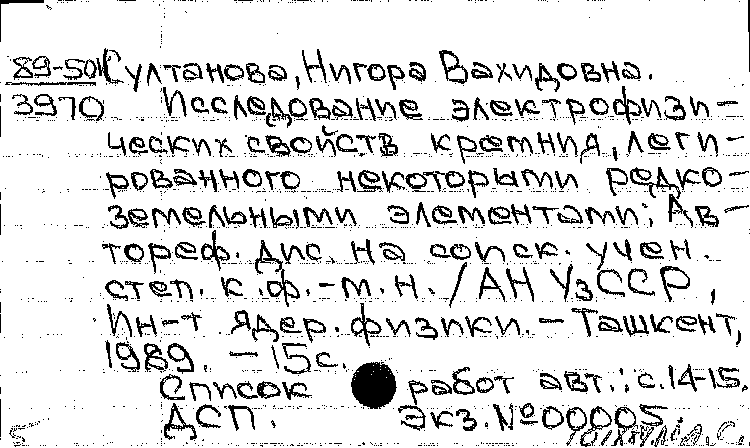 89-501 Султанова, Нигора Вахидовна.
3970 Исследование электрофизи-
ческих свойств кремния, леги-
рованного некоторыми редко-
земельными элементами: Ав-
тореф. дис. на соиск. учен.
степ. к.ф.-м.н. / АН УзССР,
Ин-т ядер. физики. - Ташкент,
1989. - 15 с.
Список работ авт.: с.14-15.
ДСП. Экз. №00005